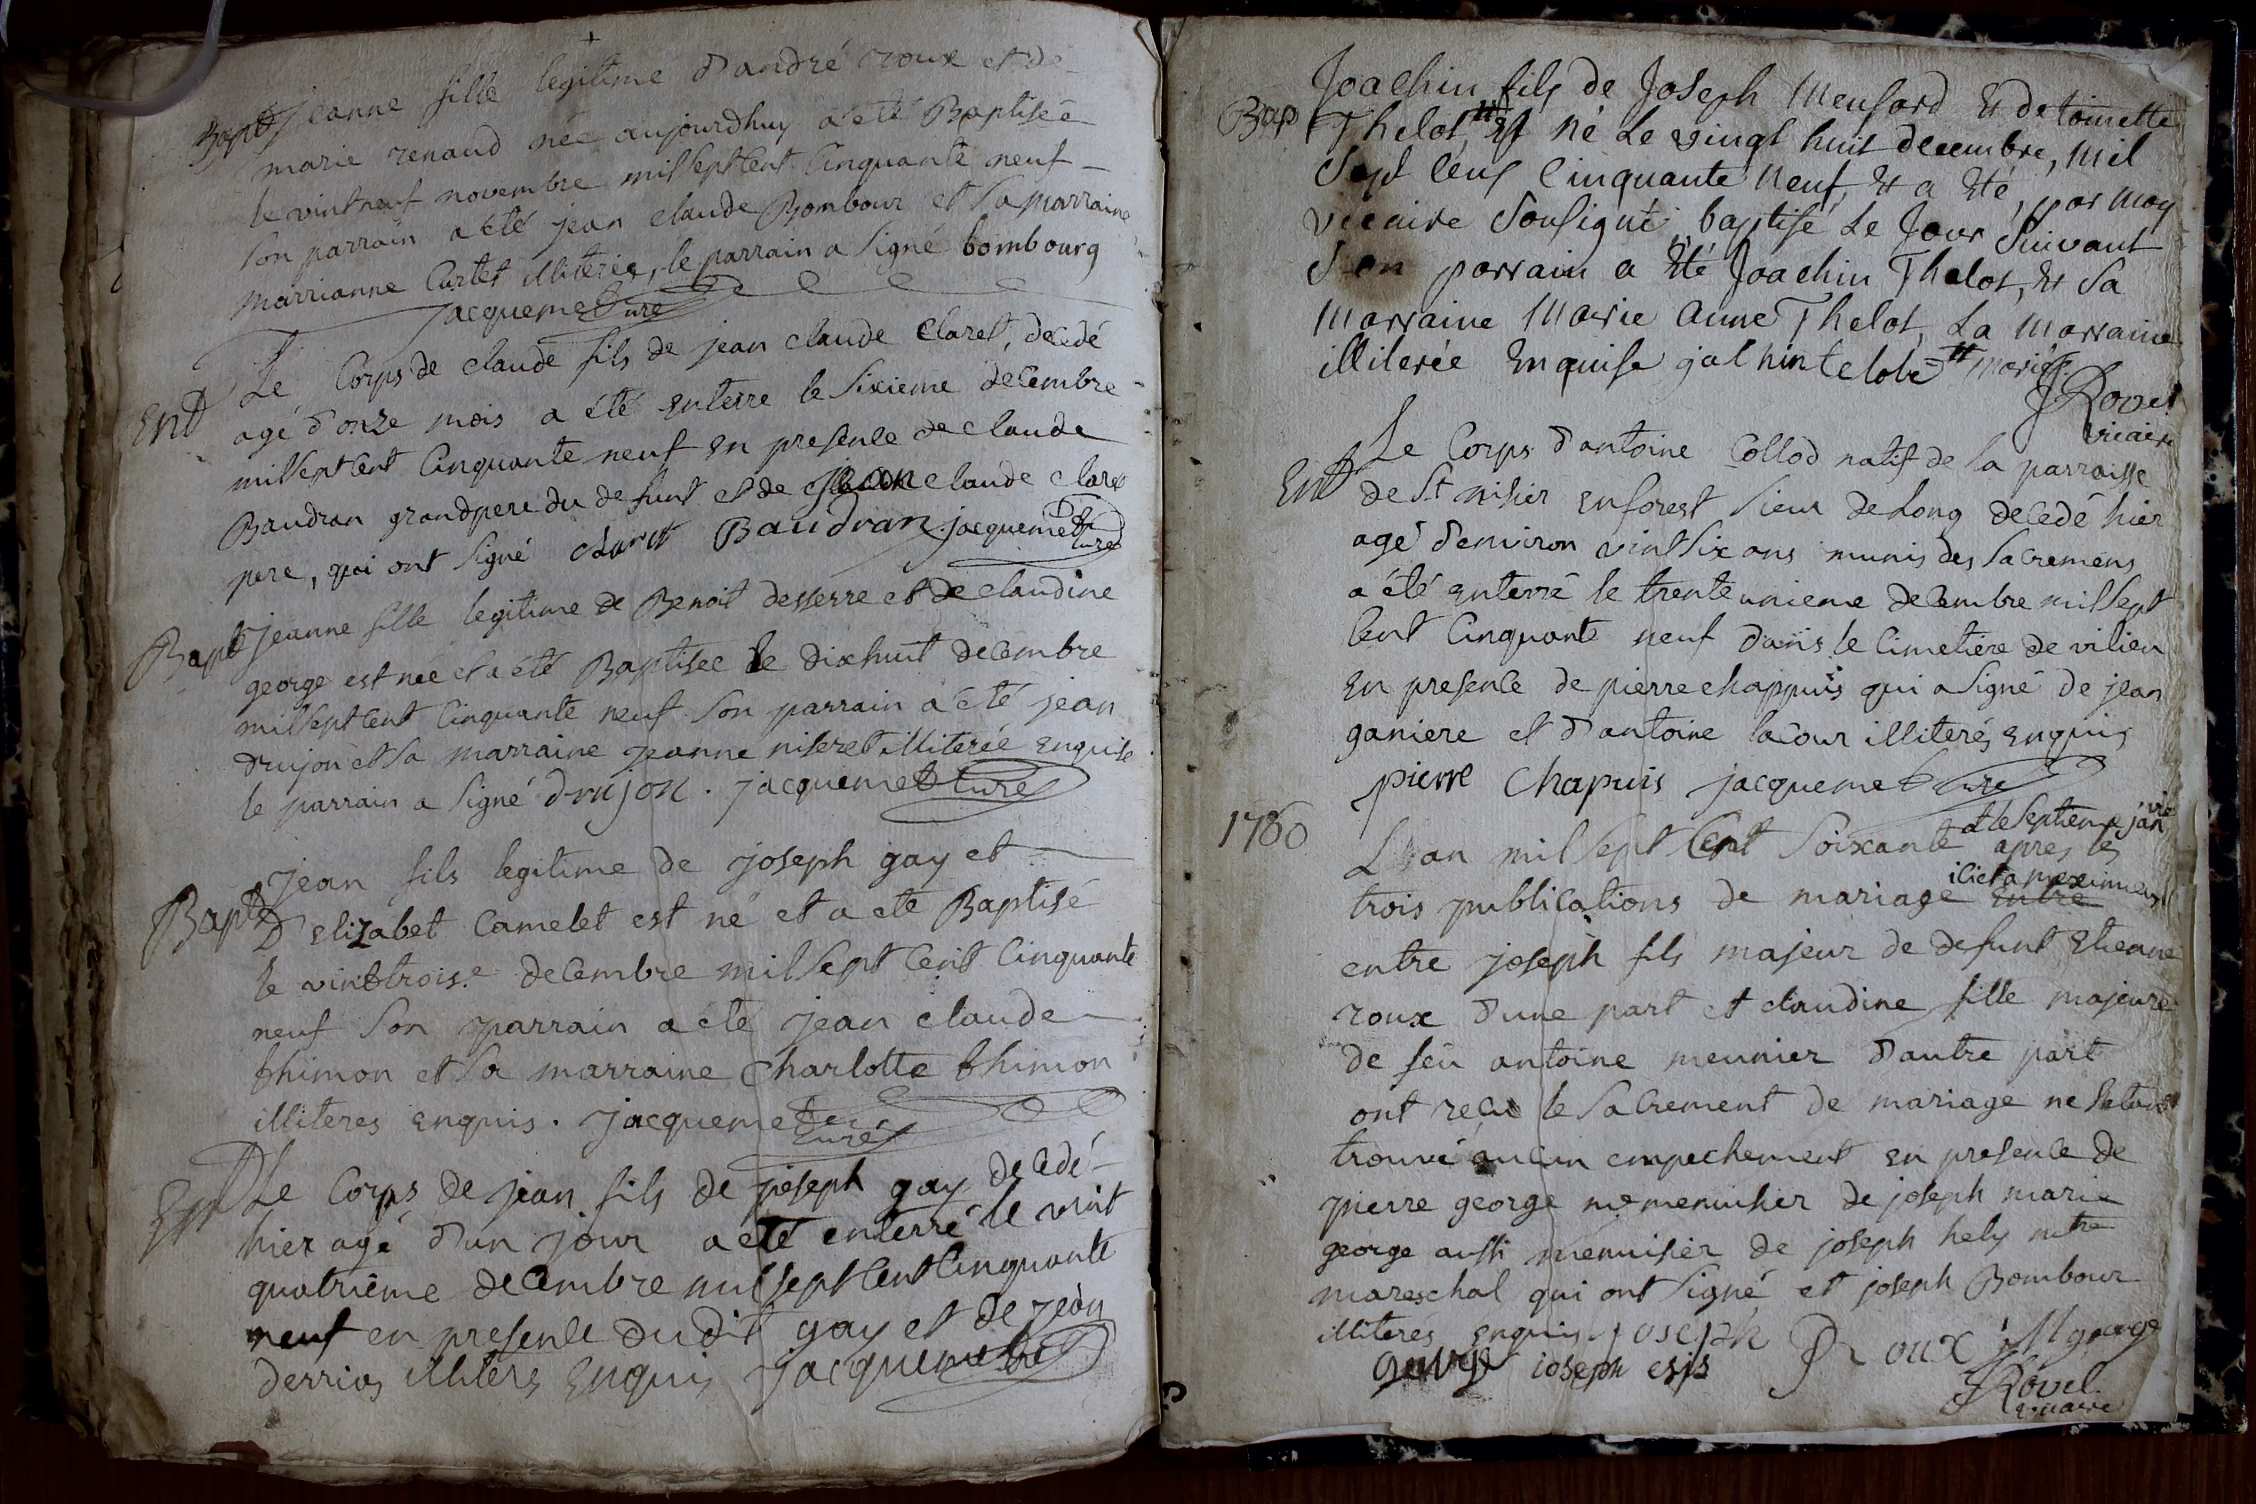 Bapt Jeanne fille legitime d'andré roux et de
marie renaud née aujourdhuy a été Baptisée
le vintneuf novembre mil sept cent Cinquante neuf
son parrain a été jean claude Bombour et sa marraine
marrianne Curtet illiterée, le parrain a signé bombourg
jacquemet curé
Ent Le Corps de claude fils de jean claude Claret, decedé
agé d'onze mois a été enterre le sixieme decembre
mil sept cent Cinquante neuf en presence de claude
Baudran grandpere du defunt et de jean claude claret
pere, qui ont signé claret Baudran jacquemet curé
Bapt Jeanne fille legitime de Benoit desserre et de claudine
george est née et a été Baptisee le dixhuit decembre
mil sept cent Cinquante neuf son parrain a été jean
drujon et sa marraine jeanne niseret illiterée enquise
le parrain a signé drujon . jacquemet curé
Bapt Jean fils legitime de joseph gay et
D'elizabet Camelet est né et a eté Baptisé
le vinttrois.e decembre mil sept cent Cinquante
neuf son parrain a eté jean claude
thimon et sa marraine Charlotte thimon
illiteres enquis . jacquemet curé
Ent Le Corps de jean fils de joseph gay decedé
hier agé d'un jour a eté enterré le vint
quatriême decembre mil sept cent Cinquante
neuf en presence dudit gay et de jean
derrias illiterés enquis jacquemet curé
Joachin fils de Joseph Meusard & de toinette
Bap Thelot # est né Le vingt huit decembre, mil
Sept Cens Cinquante Neuf, & a Eté, par moy
viccaire Sousigné, baptisé Le Jour Suivant
Son parrain a Eté Joachin Thelot, & Sa
Marraine Marie Anne Thelot, La Marraine
illiterée Enquise # mariés
J Rovel
vicaire
Le Corps d'antoine Collod natif de la parroisse
Ent de St nisier en forest sieur de Long decedé hier
agé d'environ vintsix ans munis des sacremens
a été enterré le trente unieme decembre mil sept
cent Cinquante neuf dans le Cimetiére de vilieu
en presence de pierre chappuis qui a signé de jean
ganiere et d'antoine lacour illiterés enquis
pierre Chapuis jacquemet curé
1760
et le septieme janvie
L'an mil sept Cent soixante apres les
ici et a meximieux
trois publications de mariage entre
entre joseph fils majeur de defunt Etienne
roux d'une part et claudine fille majeure
de feu antoine meunier d'autre part
ont reçu le sacrement de mariage ne s'etant
trouvé aucun empechement en presence de
pierre george me menuisier de joseph marie
george aussi menuisier de joseph hely mtre
mareschal qui ont signé et joseph Bombour
illiterés enquis joseph Roux jM george
george ioseph
J Rovel
vicaire